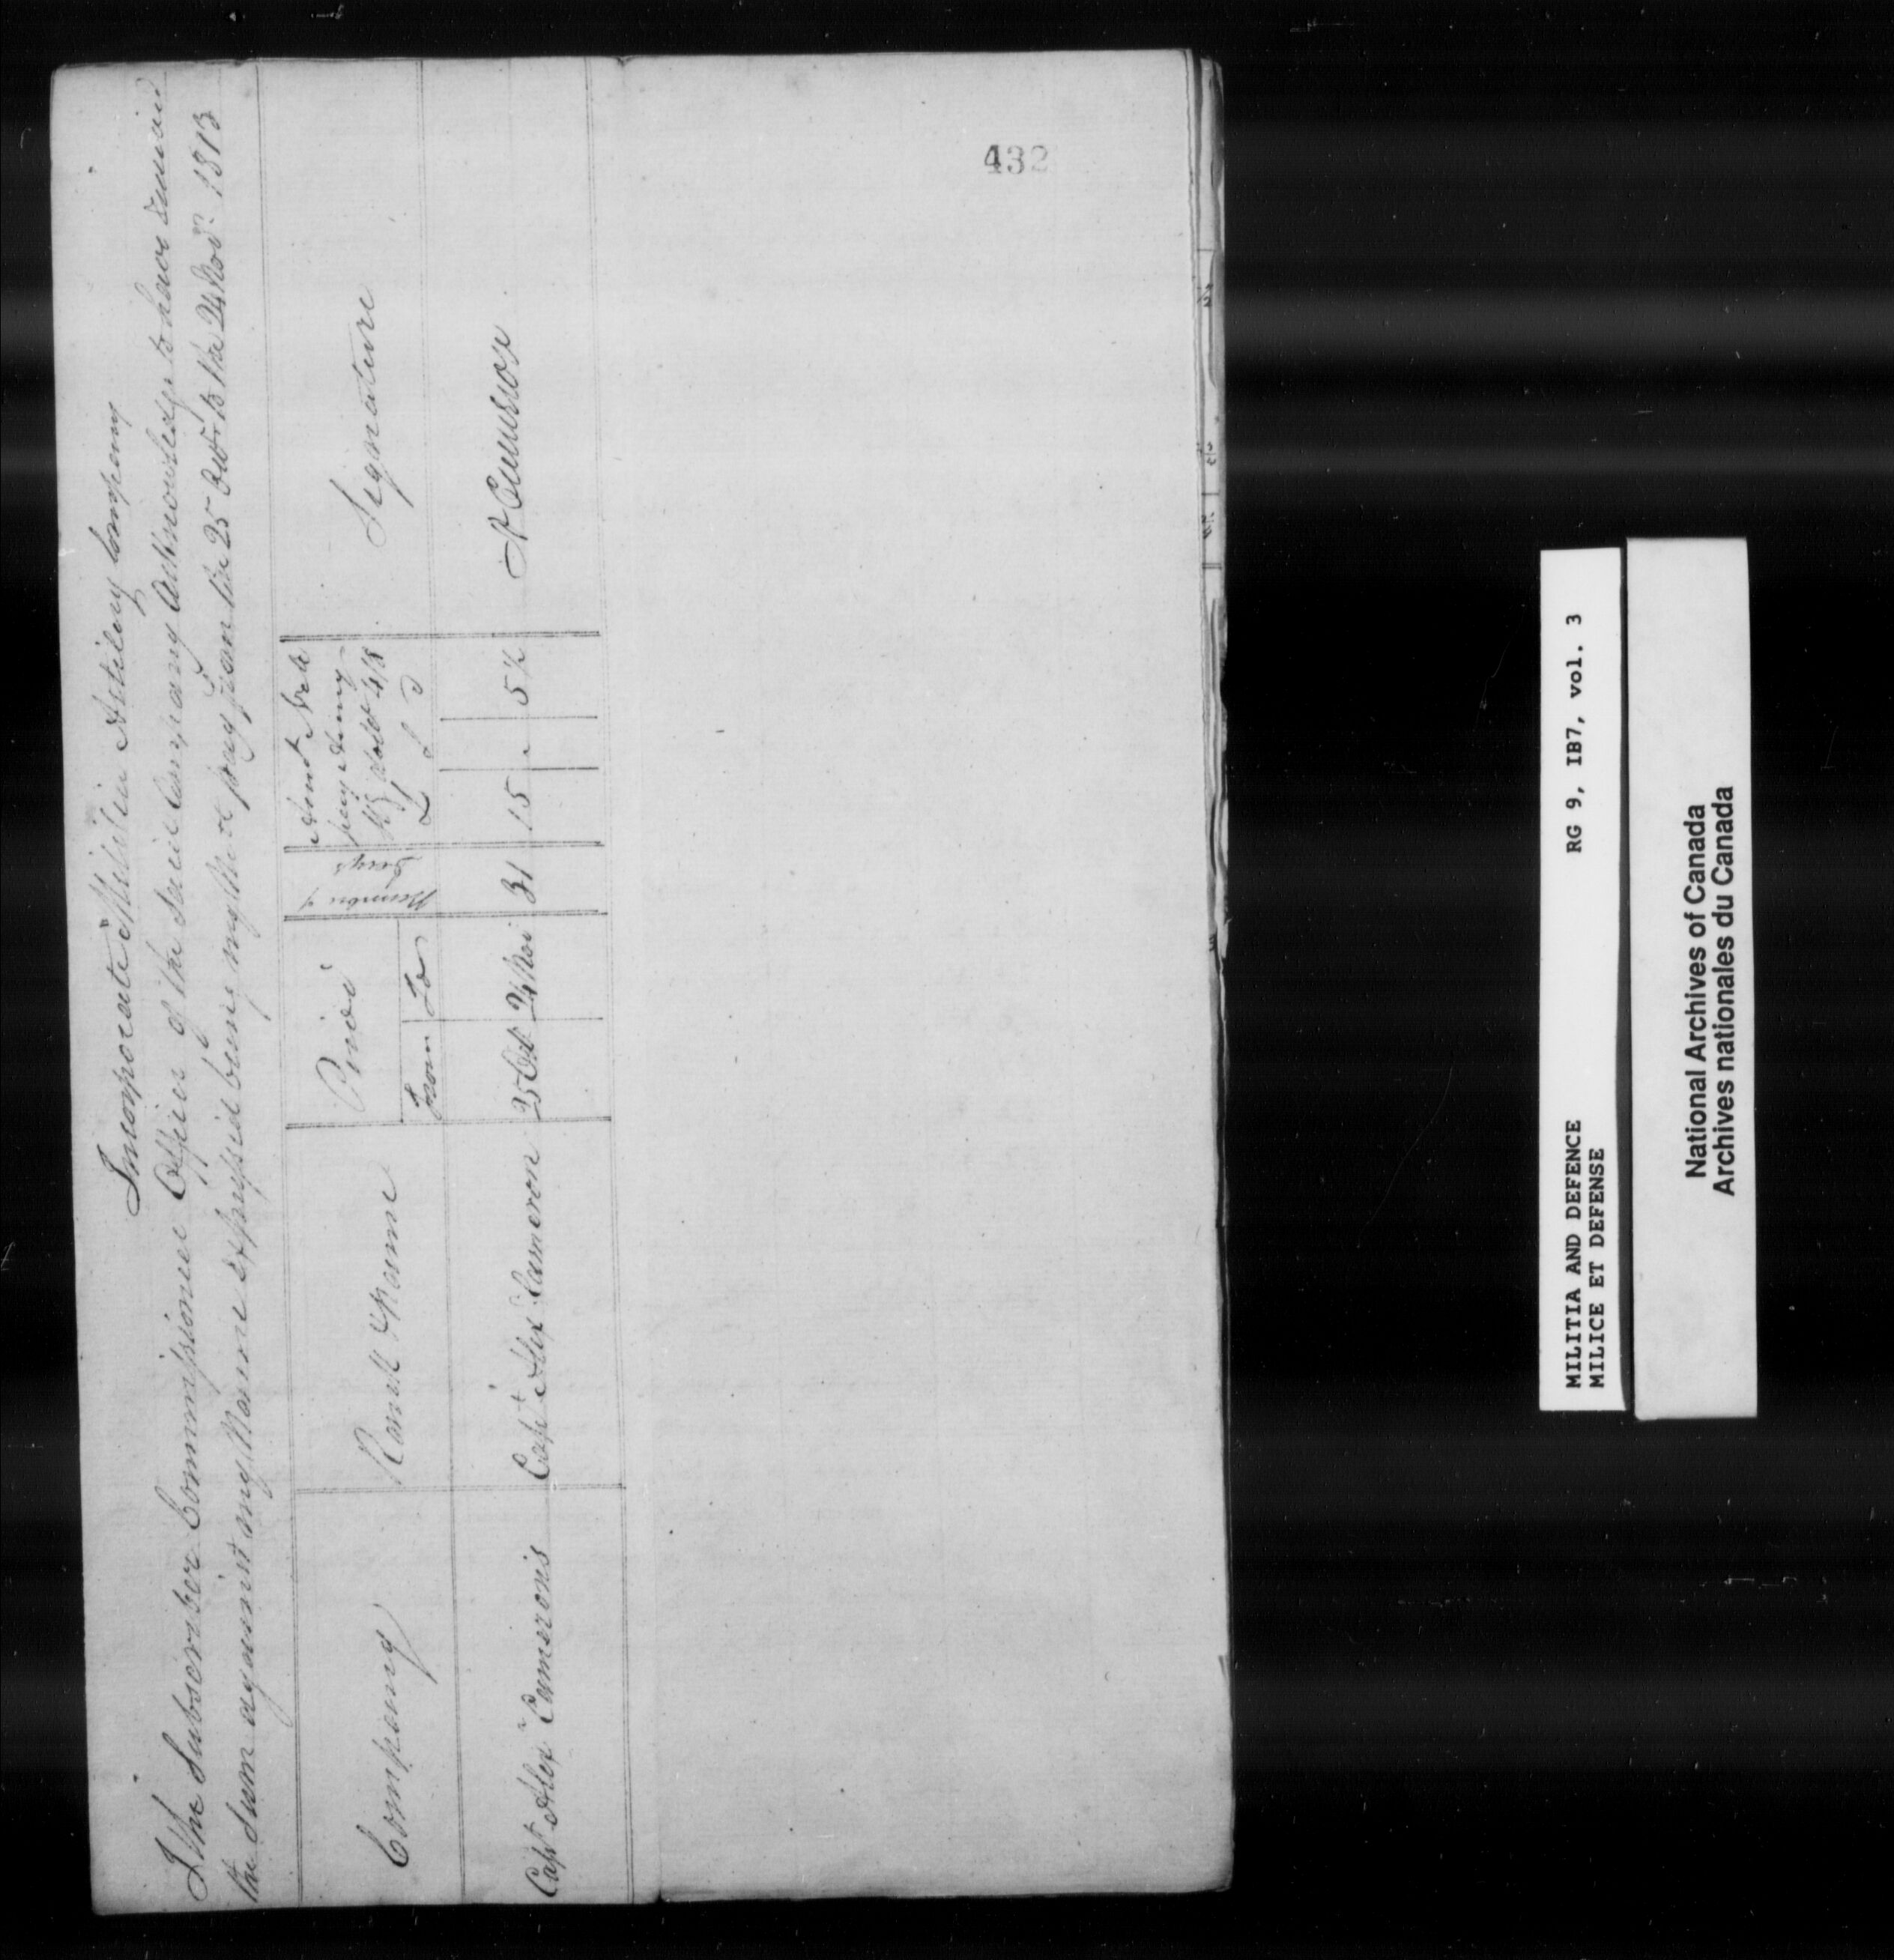 Incorporated Militia Artillery Company
I the Subscriber Commissioned Officer of the said Company Acknowledge to have received
the Sum against my Name expressed being my Net pay from the 25 Octr to the 24 Novr 1813
Company
Rank & Name
Period
From
To
Number of Days
Amount Nett
pay Army
Dollr 4/8
£ S D
Signature
Capt Alexr Camerons
Capt Alex Cameron
25 Oct
24 Nov
31
15 - 5½
A Cameron
432
MILITIA AND DEFENCE RG 9, IB7, vol. 3
MILICE ET DEFENSE
National Archives of Canada
Archives nationales du Canada